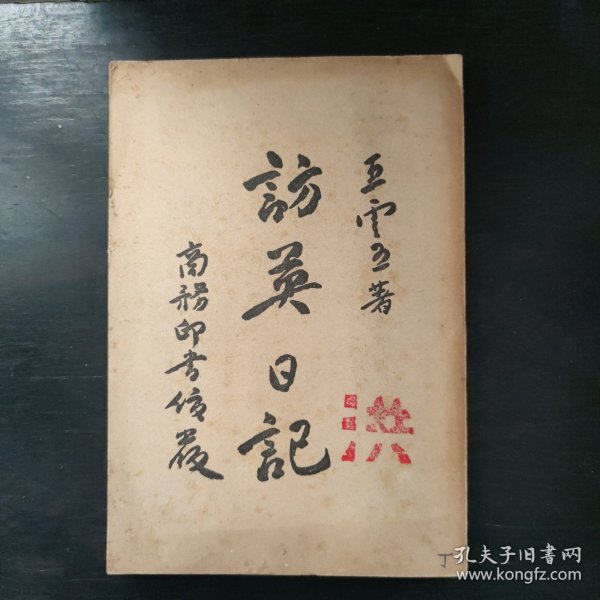 王雲五著
訪英日記
商務印書館發行
洪
丁
孔夫子旧書网
www.kongfz.com